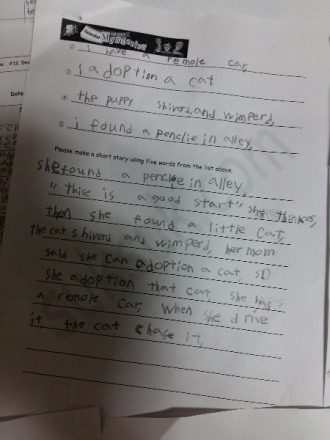 i have a remole car,
i adoption a cat
the puppy shiverd and wimperd,
i found a penclie in alley,
Please make a short story using five words from the list above.
she found a penclie in alley,
"thise is a good start" she thinkes,
then she found a little cat,
the cat shiverd and wimperd, her mom
said she can adoption a cat, so
she adoption that cat, she has
a remole car, When she drive
it, the cat chase it,